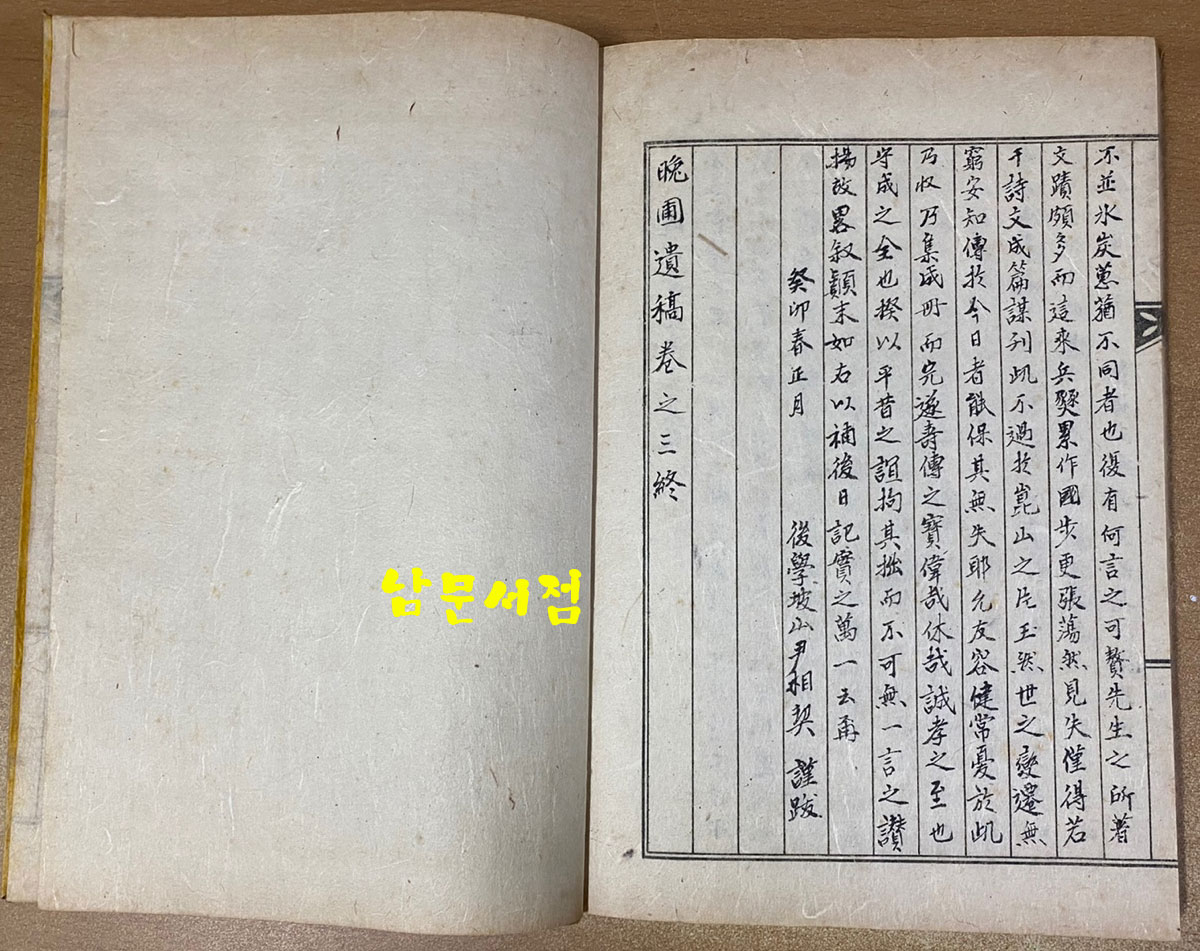 不並氷炭薰蕕不同者也復有何言之可贅先生之所著
文蹟頗多而這來兵燹累作國步更張蕩然見失僅得若
干詩文成篇謀刊此不過於崑山之片玉然世之變遷無
窮安知傳於今日者能保其無失耶允友容健常憂於此
乃收乃集成冊而完遂壽傳之寶偉哉休哉誠孝之至也
守成之全也揆以平昔之誼拘其拙而不可無一言之讃
揚故畧叙顚末如右以補後日記實之萬一云甭
癸卯春正月 後學坡山尹相契 謹跋
晚圃遺稿卷之三終
남문서점